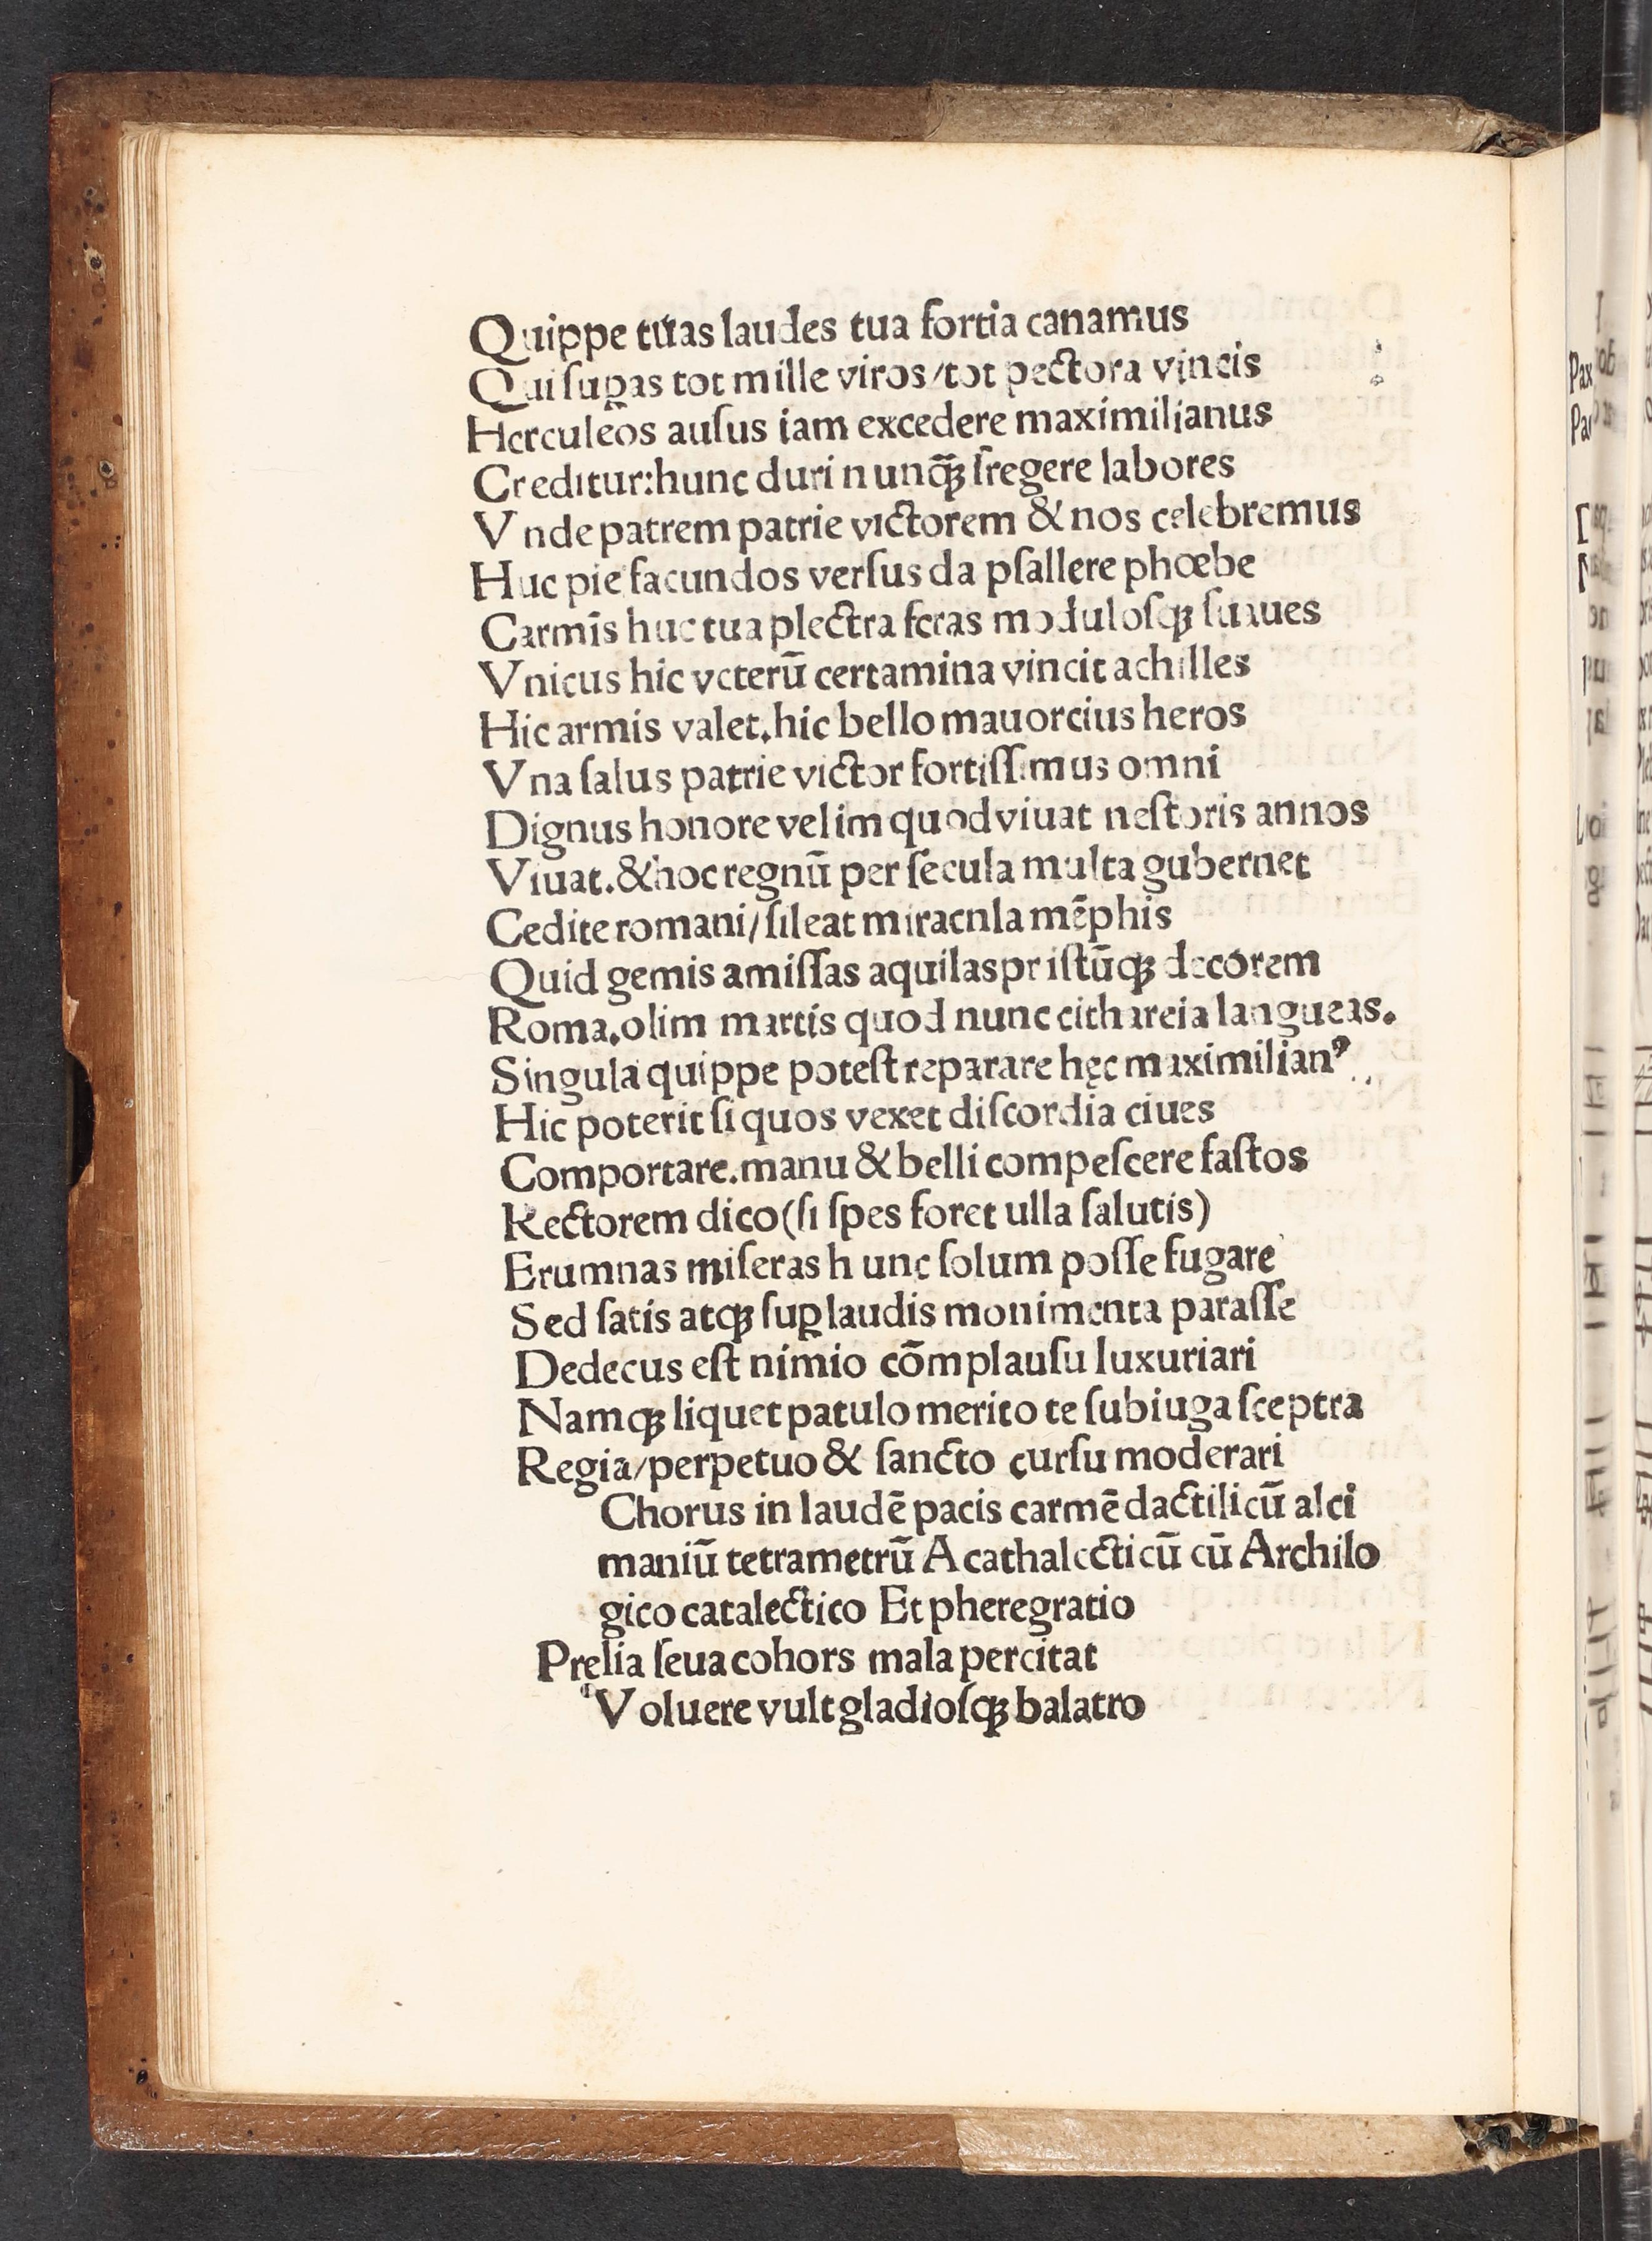 Quippe tuas laudes tua fortia canamus
Qui fugas tot mille viros/tot pectora vincis
Herculeos auſus iam excedere maximilianus
Creditur:hunc duri nunq̃ꝫ fregere labores
Vnde patrem patrie victorem & nos celebremus
Huc pie facundos verſus da pſallere phœbe
Carmīs huc tua plectra feras moduloſqꝫ ſuaues
Vnicus hic veterū certamina vincit achilles
Hic armis valet.hic bello mauorcius heros
Vna ſalus patrie victor fortiſſimus omni
Dignus honore velim quod viuat neſtoris annos
Viuat.& hoc regnū per ſecula multa gubernet
Cedite romani/ſileat miracnla mēphis
Quid gemis amiſſas aquilas priſtūqꝫ decorem
Roma.olim martis quod nunc cithareia langueas.
Singula quippe poteſt reparare hęc maximilianꝰ
Hic poterit ſi quos vexet diſcordia ciues
Comportare.manu & belli compeſcere faſtos
Rectorem dico(ſi ſpes foret ulla ſalutis)
Erumnas miſeras hunc ſolum poſſe fugare
Sed ſatis atqꝫ ſuꝑ laudis monimenta paraſſe
Dedecus eſt nimio cōmplauſu luxuriari
Namqꝫ liquet patulo merito te ſubiuga ſceptra
Regia/perpetuo & ſancto curſu moderari
Chorus in laudē pacis carmē dactilicū alci
maniū tetrametrū Acathalecticū cū Archilo
gico catalectico Et pheregratio
Pręlia ſeua cohors mala percitat
Voluere vult gladioſqꝫ balatro